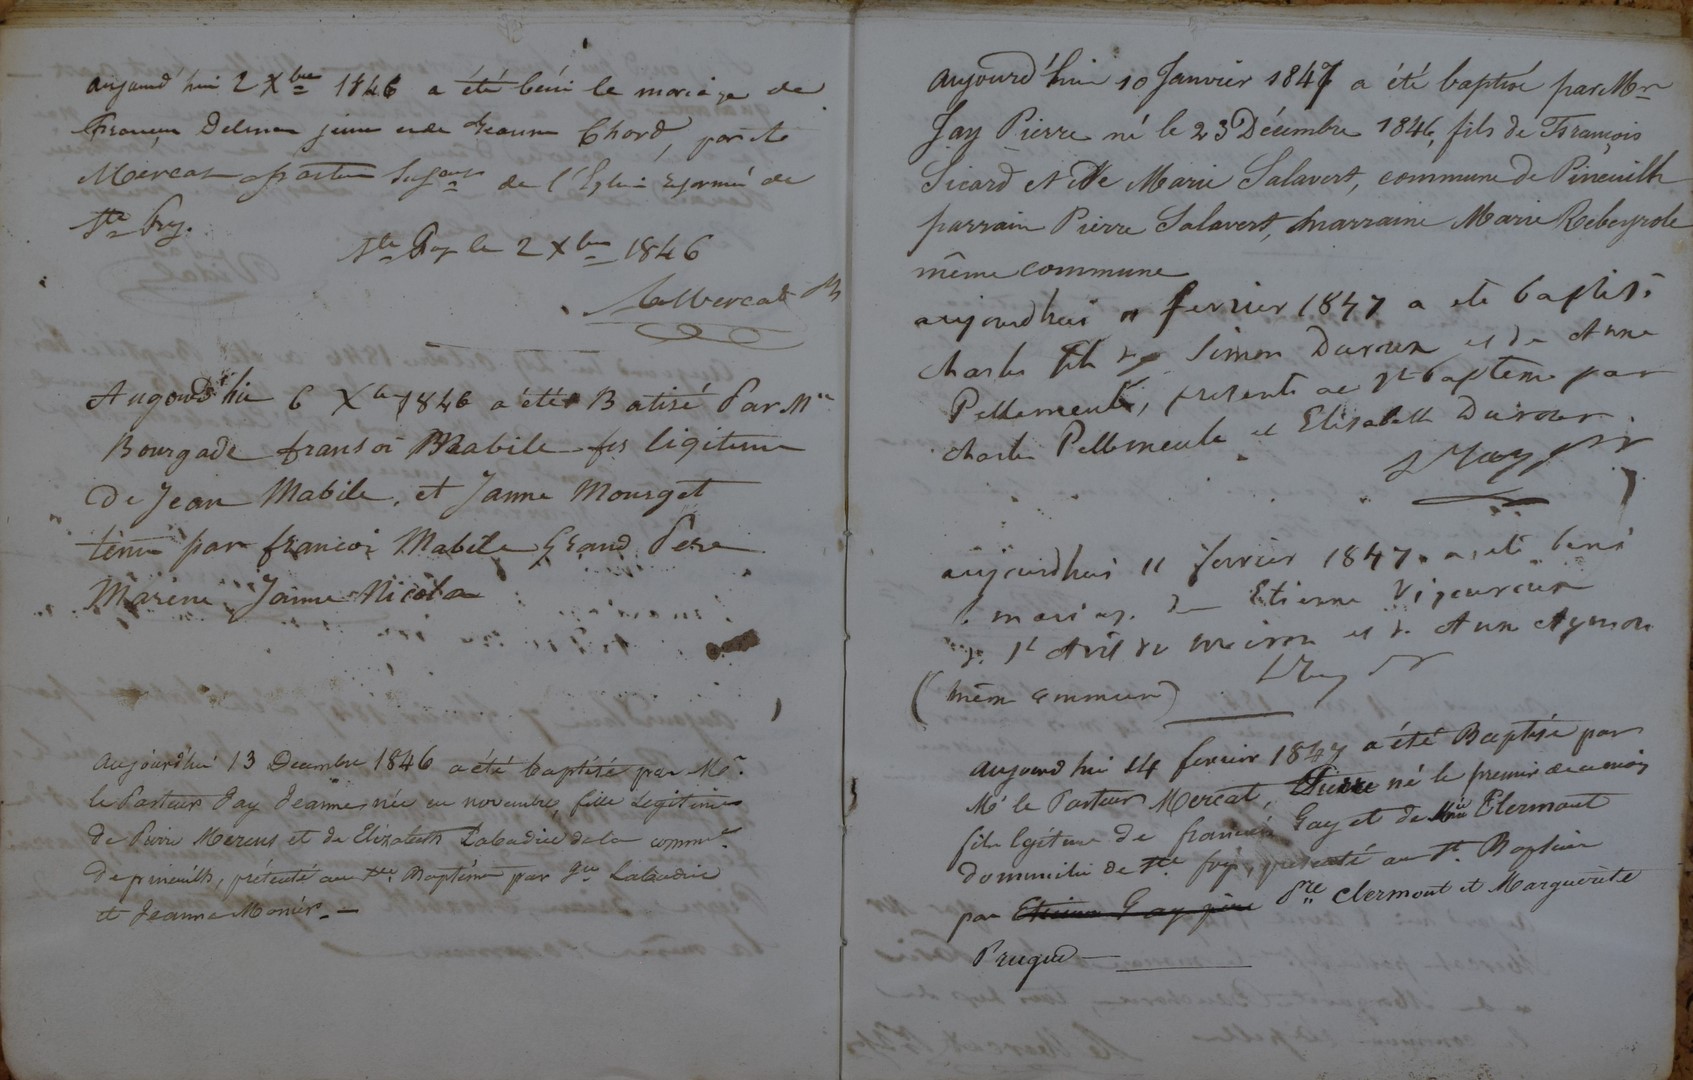 Aujourd'hui 2 Xbre 1846 a été béni le mariage de
jeune et de Jeanne Chord, par le
Mercat pasteur de l'Eglise réformée de
Ste Foy.
Ste Foy le 2 Xbre 1846
Mercat
Augourd'hui 6 Xbre 1846 a été Batisé Par Mr
Bourgade fransoi Mabile fis ligitime
De Jean Mabile, et Janne Mourget
tenu par francoi Mabile Grand Pere
Marene Janne Nicola
Aujourd'hui 13 Decembre 1846 a été baptisée par Mr.
le Pasteur Jay Jeanne née en novembre, fille Legitime
de Pierre Mereus et de Elizabeth Labadie de la comme.
de pineuilh, présenté au Baptême par Labadie
et Jeanne Monier. —
Aujourd'hui 10 Janvier 1847 a été baptisé par Mr
Jay Pierre né le 23 Décembre 1846, fils de François
Sicard et de Marie Salavert, commune de Pineuilh
parrain Pierre Salavert, marraine Marie Rebeyrole
même commune
aujourdhui fevrier 1847 a été baptisé
charles fils de Simon Duroux et de Anne
Pellemeule, presenté au st bapteme par
charles Pellemeule et Elisabeth Duroux.
Jay
aujourdhui 11 fevrier 1847. a été beni
le mariage de Etienne Vigouroux
de St Avit du moiron et de Anne Aymon
(même commune)
Jay
Aujourd'hui 14 fevrier 1847 a été Baptisé par
Mr le Pasteur Mercat, Pierre né le premier de ce mois
fils legitime de francois Gay et de Mie Clermont
domicilié de Ste foy, presenté au St. Baptême
par Etienne Gay père Pre Clermont et Marguerite